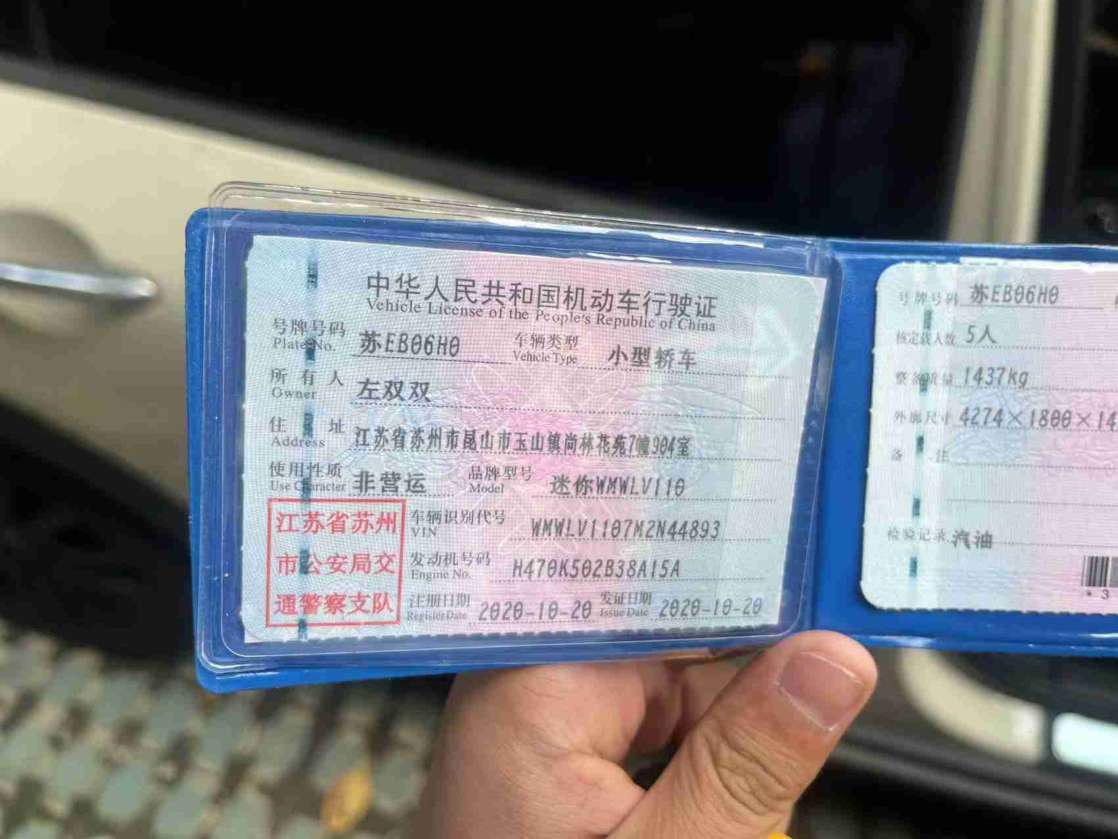 中华人民共和国机动车行驶证
Vehicle License of the People's Republic of China
号牌号码 苏EB06H0 车辆类型 小型轿车
Plate No. Vehicle Type
所有人 左双双
Owner
住址 江苏省苏州市昆山市玉山镇尚林花苑7幢904室
Address
使用性质 非营运 品牌型号 迷你WMWLV110
Use Character Model
江苏省苏州
市公安局交
通警察支队
车辆识别代号 WMWLV1107M2N44893
VIN
发动机号码 H470K502B38A15A
Engine No.
注册日期 2020-10-20 发证日期 2020-10-20
Register Date Issue Date
号牌号码 苏EB06H0
核定载人数 5人
整备质量 1437kg
外廓尺寸 4274×1800×14
备注
检验记录 汽油
* 3